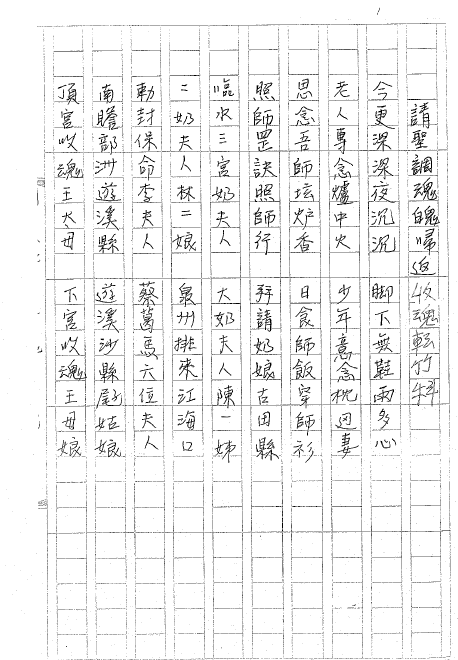 1
請聖調魂魄歸返 收魂転竹科
今更深深夜沉沉 脚下無鞋雨多心
老人專念爐中火 少年意念枕边妻
思念吾師坛炉香 日食師飯穿師衫
照師罡訣照師行 拜請奶娘古田縣
臨水三宮奶夫人 大奶夫人陳一姊
二奶夫人林二娘 泉州排來江海口
勅封保命李夫人 蔡葛馬六位夫人
南贍部洲遊溪縣 遊溪沙縣尾姑娘
頂宮收魂王太母 下宮收魂王母娘